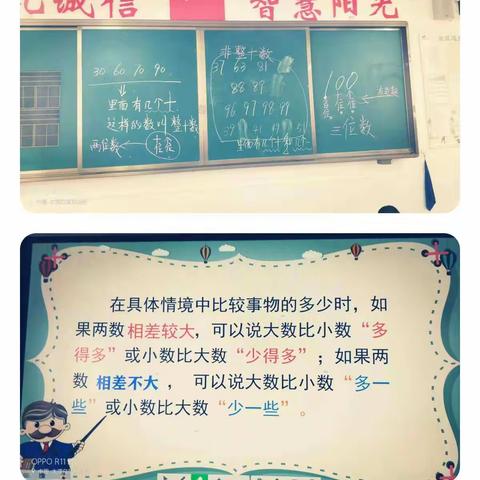 诚信
智慧阳光
30 60 70 90
里面有几个十
这样的数叫整十数
两位数
十位 个位
非整十数
37 53 81
88 89
96 97 98 99
100
百位 十位 个位
三位数
在具体情境中比较事物的多少时，如
果两数相差较大，可以说大数比小数“多
得多”或小数比大数“少得多”；如果两
数 相差不大， 可以说大数比小数“多一
些”或小数比大数“少一些”。
OPPO R11